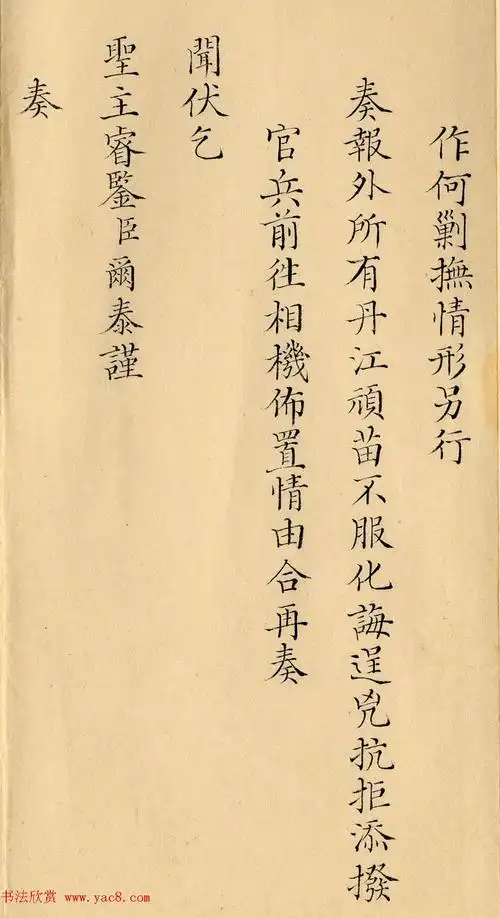 作何剿撫情形另行
奏報外所有丹江頑苗不服化誨逞兇抗拒添撥
官兵前徃相機佈置情由合再奏
聞伏乞
聖主睿鑒臣爾泰謹
奏
书法欣赏 www.yac8.com